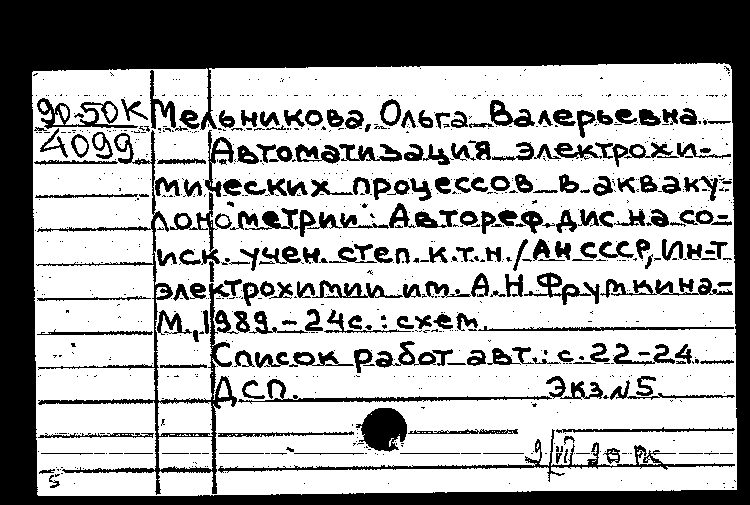 90-50К Мельникова, Ольга Валерьевна
4099 Автоматизация электрохи-
мических процессов в акваку-
лонометрии : Автореф. дис. на со-
иск. учен. степ. к.т.н. / АН СССР, Ин-т
электрохимии им. А.Н. Фрумкина. -
М., 1989. - 24с. : схем.
Список работ авт.: с. 22-24.
ДСП. Экз. № 5.
9/VII 90
5